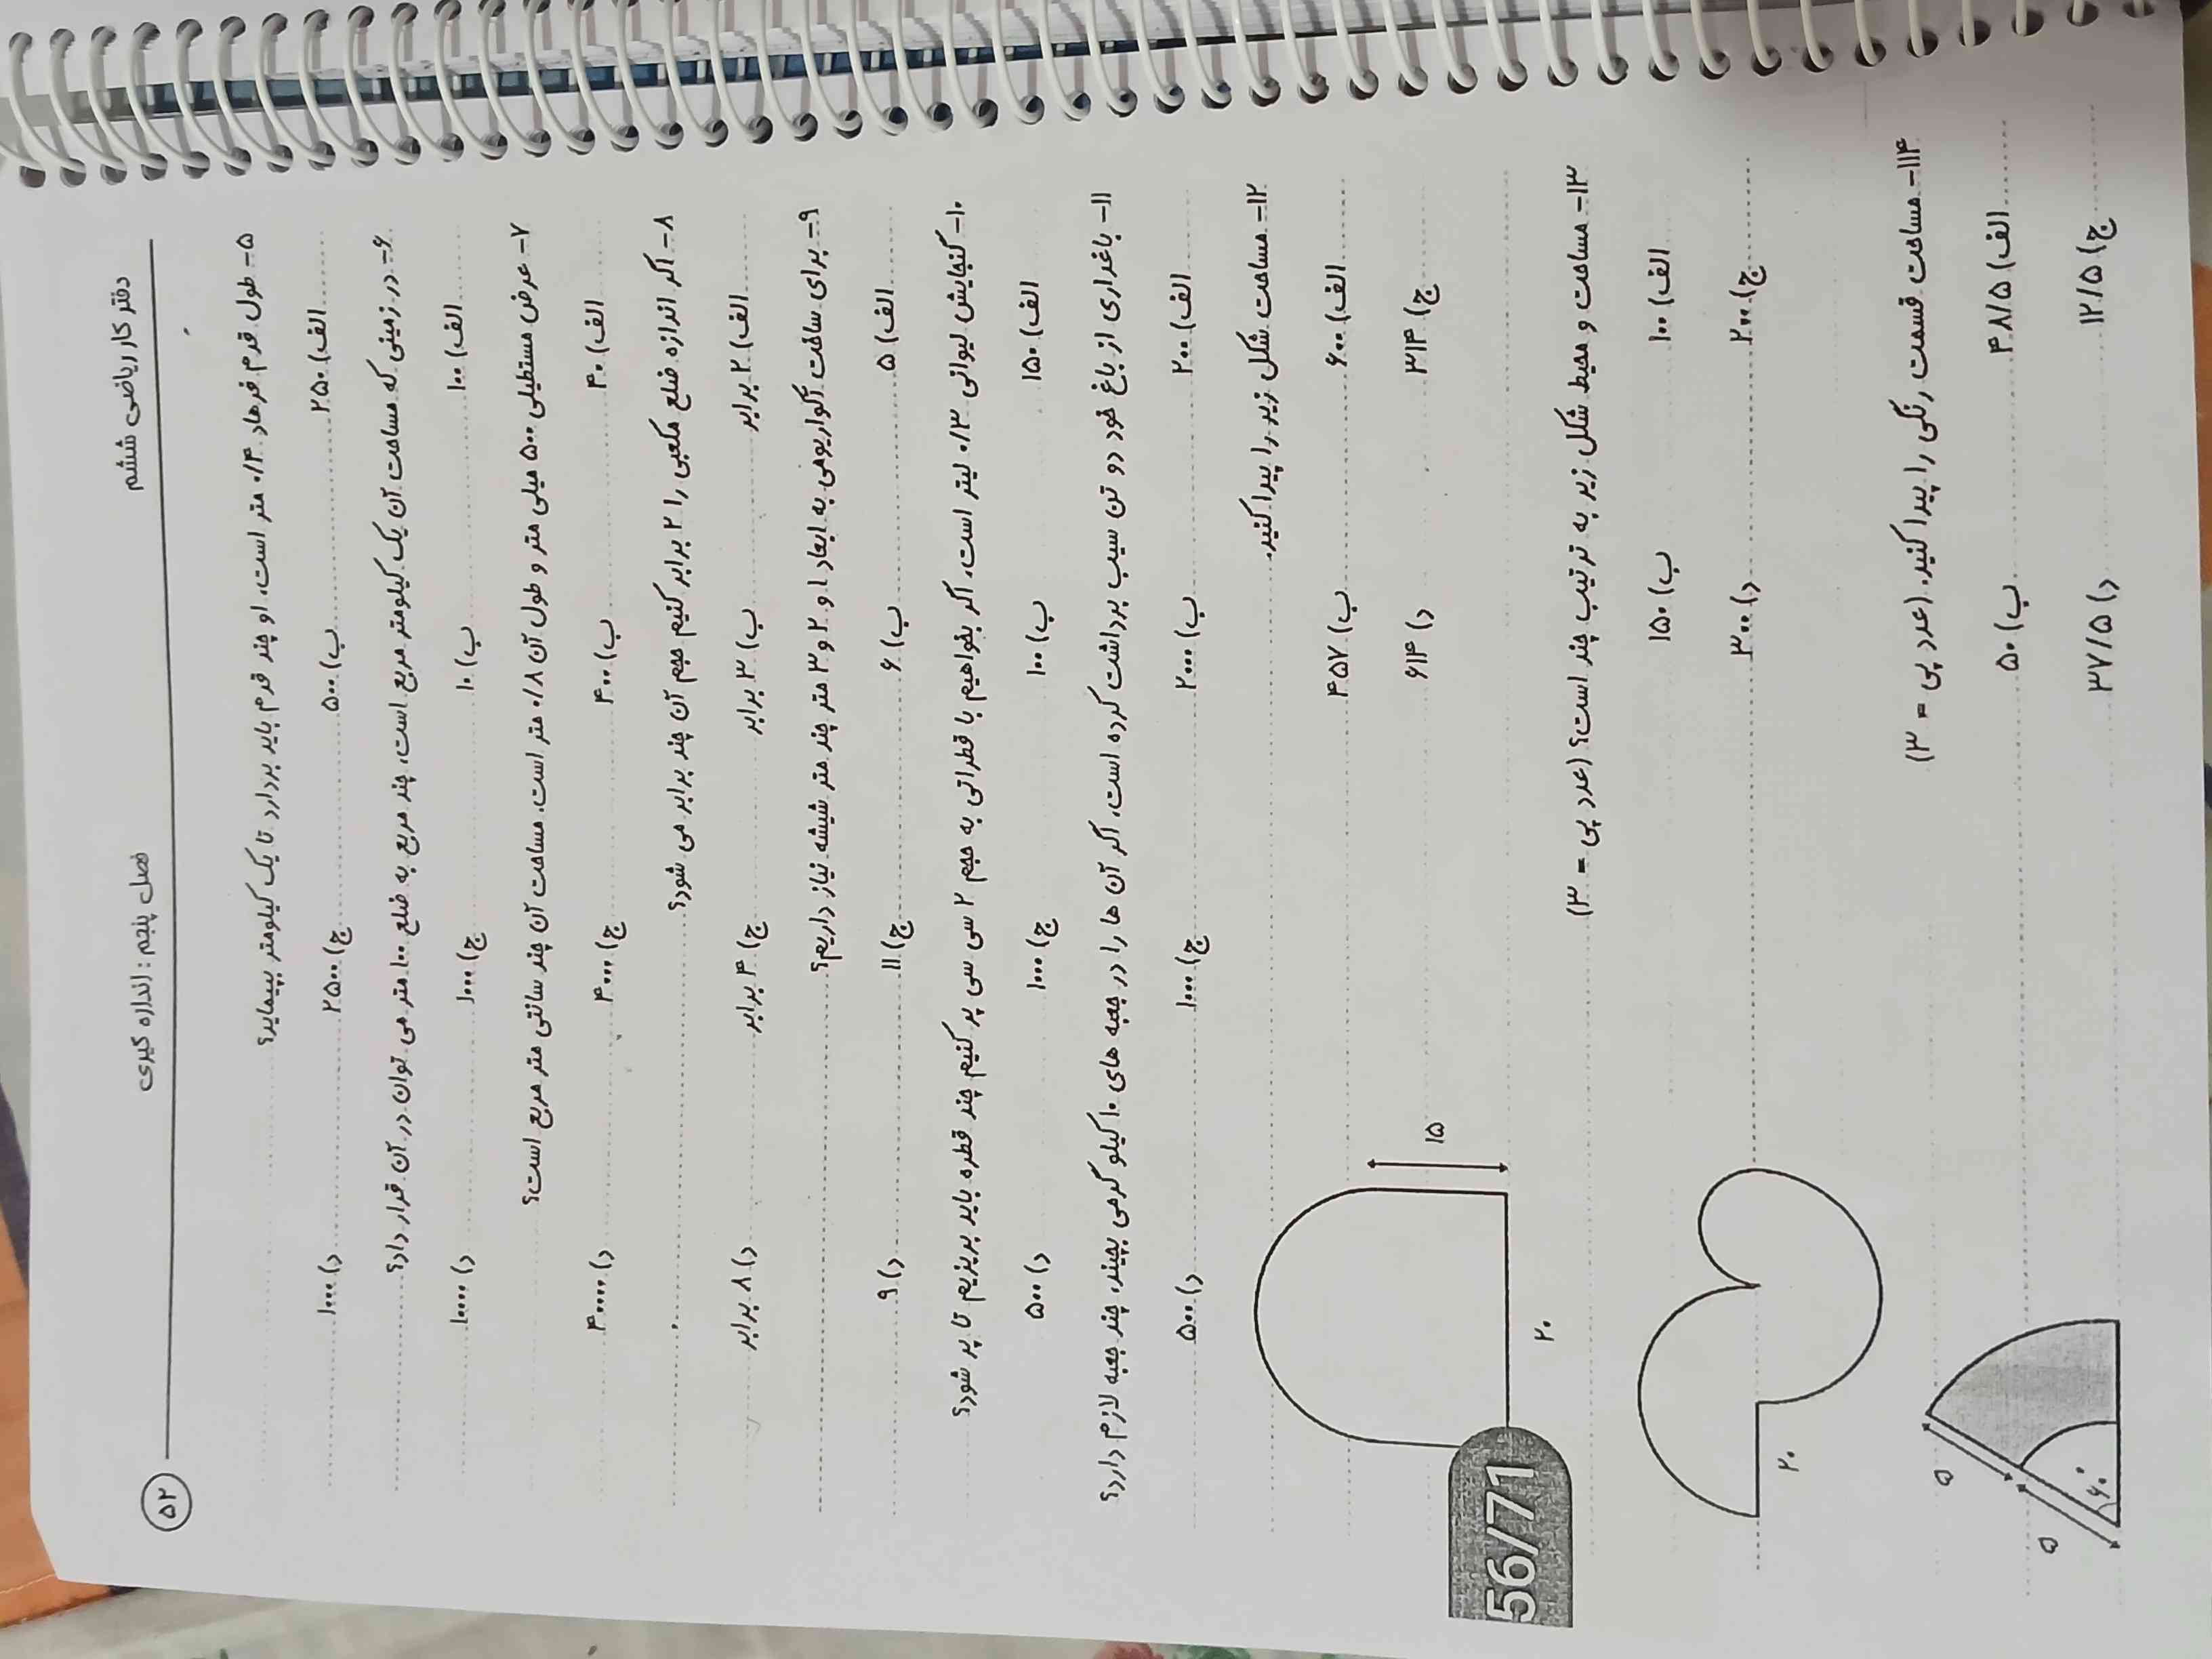 ۵۲
فصل پنجم : اندازه گیری
دفتر کار ریاضی ششم
۵- طول قدم فرهاد ۰/۴ متر است، او چند قدم باید بردارد تا یک کیلومتر بپیماید؟
الف) ۲۵۰ ب) ۵۰۰ ج) ۲۵۰۰ د) ۱۰۰۰
۶- در زمینی که مساحت آن یک کیلومتر مربع است، چند مربع به ضلع ۱۰۰ متر می توان در آن قرار داد؟
الف) ۱۰۰ ب) ۱۰ ج) ۱۰۰۰ د) ۱۰۰۰۰
۷- عرض مستطیلی ۵۰۰ میلی متر و طول آن ۰/۸ متر است. مساحت آن چند سانتی متر مربع است؟
الف) ۴۰ ب) ۴۰۰ ج) ۴۰۰۰ د) ۴۰۰۰۰
۸- اگر اندازه ضلع مکعبی را ۲ برابر کنیم حجم آن چند برابر می شود؟
الف) ۲ برابر ب) ۳ برابر ج) ۴ برابر د) ۸ برابر
۹- برای ساخت آکواریومی به ابعاد ۱ و ۲ و ۳ متر چند متر شیشه نیاز داریم؟
الف) ۵ ب) ۶ ج) ۱۱ د) ۹
۱۰- گنجایش لیوانی ۰/۳ لیتر است، اگر بخواهیم با قطراتی به حجم ۲ سی سی پر کنیم چند قطره باید بریزیم تا پر شود؟
الف) ۱۵۰ ب) ۱۰۰ ج) ۱۰۰۰ د) ۵۰۰
۱۱- باغداری از باغ خود دو تن سیب برداشت کرده است، اگر آن ها را در جعبه های ۱۰ کیلو گرمی بچیند، چند جعبه لازم دارد؟
الف) ۲۰۰ ب) ۲۰۰۰ ج) ۱۰۰۰ د) ۵۰۰
۱۲- مساحت شکل زیر را پیدا کنید.
الف) ۶۰۰ ب) ۴۵۷
ج) ۳۱۴ د) ۶۱۴
۱۵
۲۰
56/71
۱۳- مساحت و محیط شکل زیر به ترتیب چند است؟ (عدد پی = ۳)
الف) ۱۰۰ ب) ۱۵۰
ج) ۲۰۰ د) ۳۰۰
۲۰
۱۱۴- مساحت قسمت رنگی را پیدا کنید. (عدد پی = ۳)
الف) ۴۸/۵ ب) ۵۰
ج) ۱۲/۵ د) ۳۷/۵
۵
۵
۶۰°